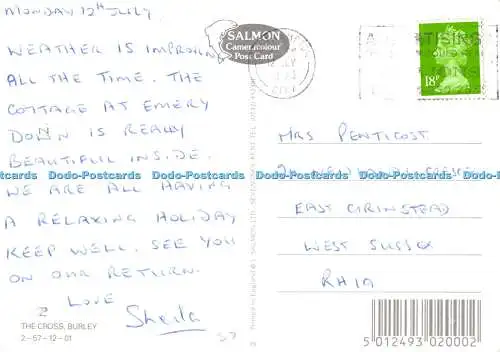 MONDAY 12TH JULY
WEATHER IS IMPROVING
ALL THE TIME. THE
COTTAGE AT EMERY
DOWN IS REALLY
BEAUTIFUL INSIDE.
WE ARE ALL HAVING
A RELAXING HOLIDAY
KEEP WELL. SEE YOU
ON OUR RETURN.
LOVE
Sheila
THE CROSS, BURLEY
2-57-12-01
SALMON
Cameracolour
Post Card
18P
MRS PENTICOST
EAST GRINSTEAD
WEST SUSSEX
RH19
5 012493 020002
Dodo-Postcards Dodo-Postcards Dodo-Postcards Dodo-Postcards